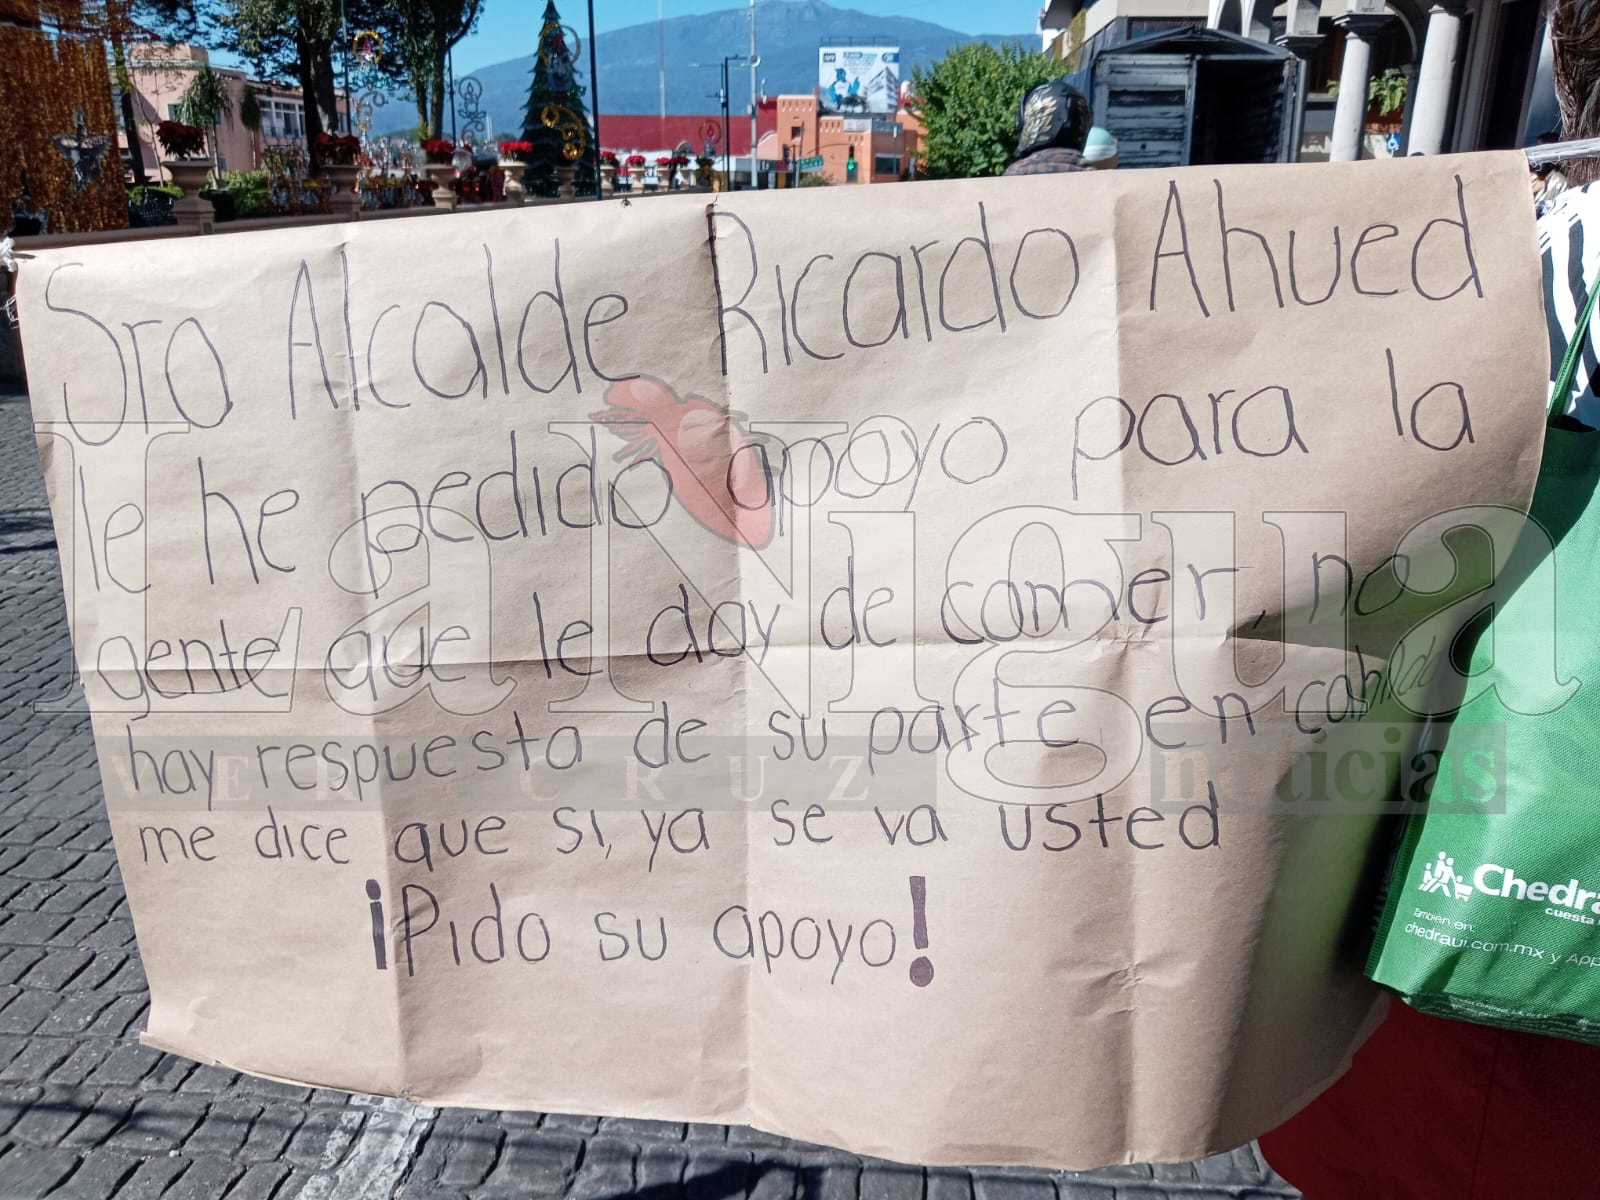 Sro Alcalde Ricardo Ahued
le he pedido apoyo para la
gente que le doy de comer, no
hay respuesta de su parte en cabildo
me dice que si, ya se va usted
¡Pido su apoyo!
La Nigua
VERACRUZ noticias
Chedra
cuesta
También en:
chedraui.com.mx y App